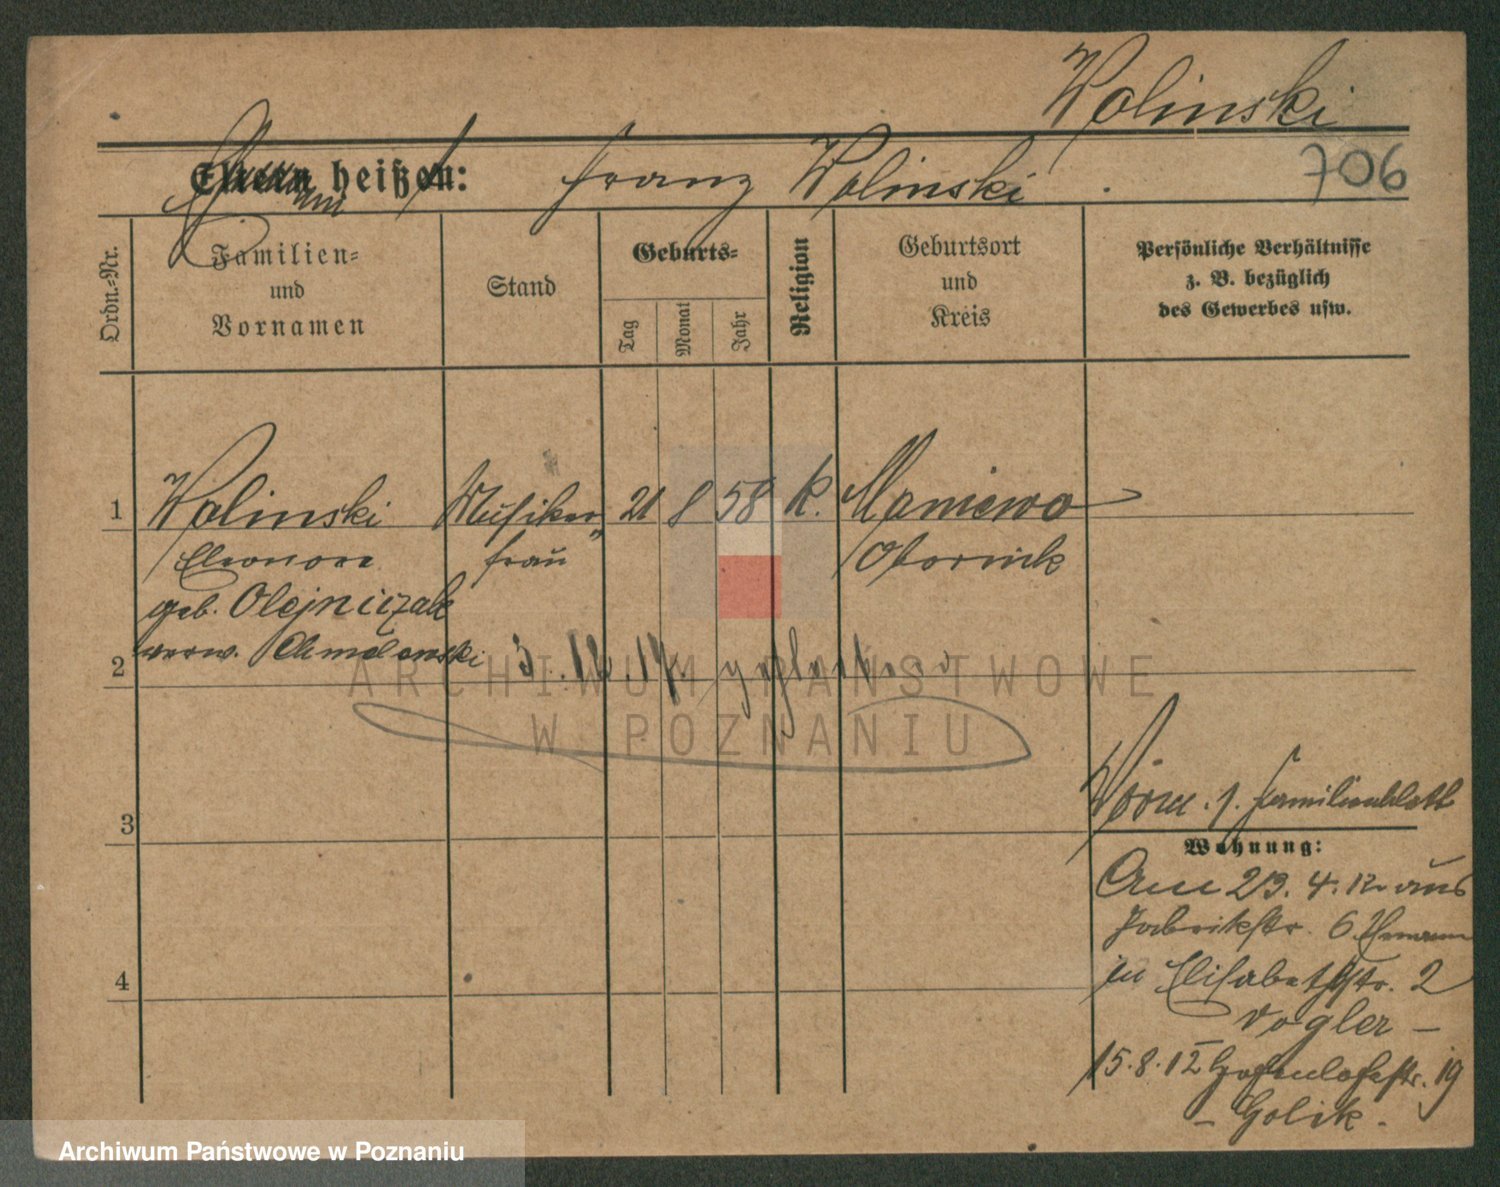 Wolinski
706
Eltern heißen: Franz Wolinski.
Ordn.-Nr.
Familien-
und
Vornamen
Stand
Geburts-
Tag
Monat
Jahr
Religion
Geburtsort
und
Kreis
Persönliche Verhältnisse
z. B. bezüglich
des Gewerbes usw.
1
Wolinski Musiker 21 8 58 k. Maniewo
Eleonore frau Obornick
geb. Olejniczak
2
verw. Chmelenski 3.12.17 gestorben
3
Vorm. s. Familienblatt
Wohnung:
Am 23. 4. 12 aus
Fabrikstr. 6
in Elisabethstr. 2
Vogler –
4
15.8.12 Hohenlohestr. 19
– Golik.
ARCHIWUM PAŃSTWOWE
W POZNANIU
Archiwum Państwowe w Poznaniu